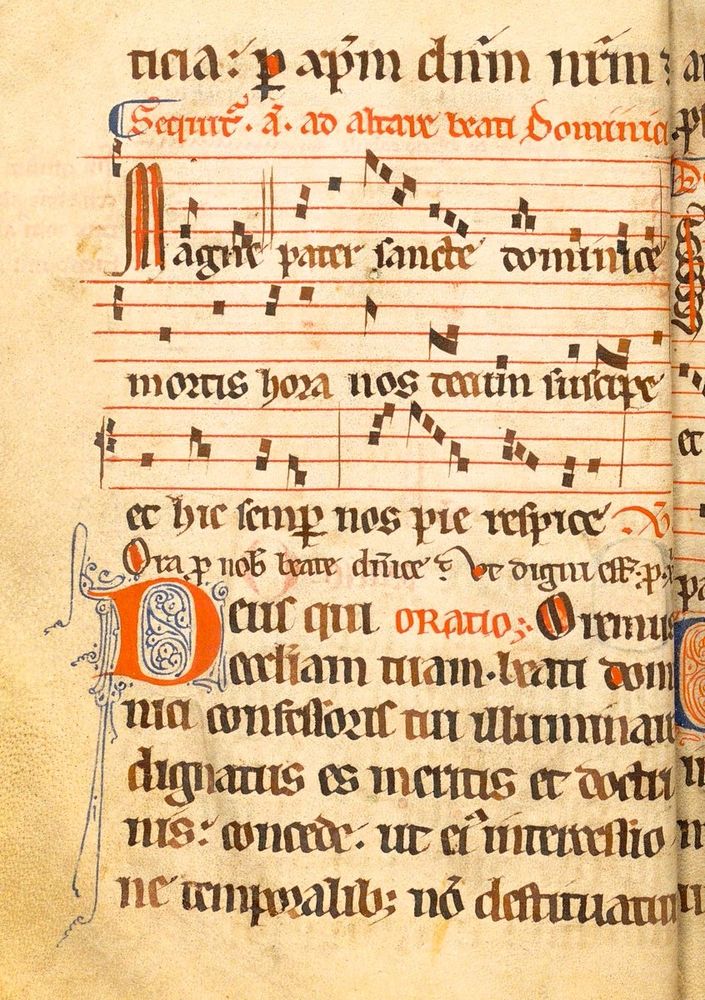 ticia: p apm dnm nrm
Sequitr. a. ad altare beati Dominici
Magne pater sancte dominice
mortis hora nos tecum suscipe
et hic semp nos pie respice
Ora p nob beate dnice: Ut digni eff. p. x
Deus qui oratio; Oremus
eccliam tuam. beati domi
nici confessoris tui illuminare
dignatus es meritis et doctri
nis: concede. ut ei intercessio
ne temporalib; no destituatur